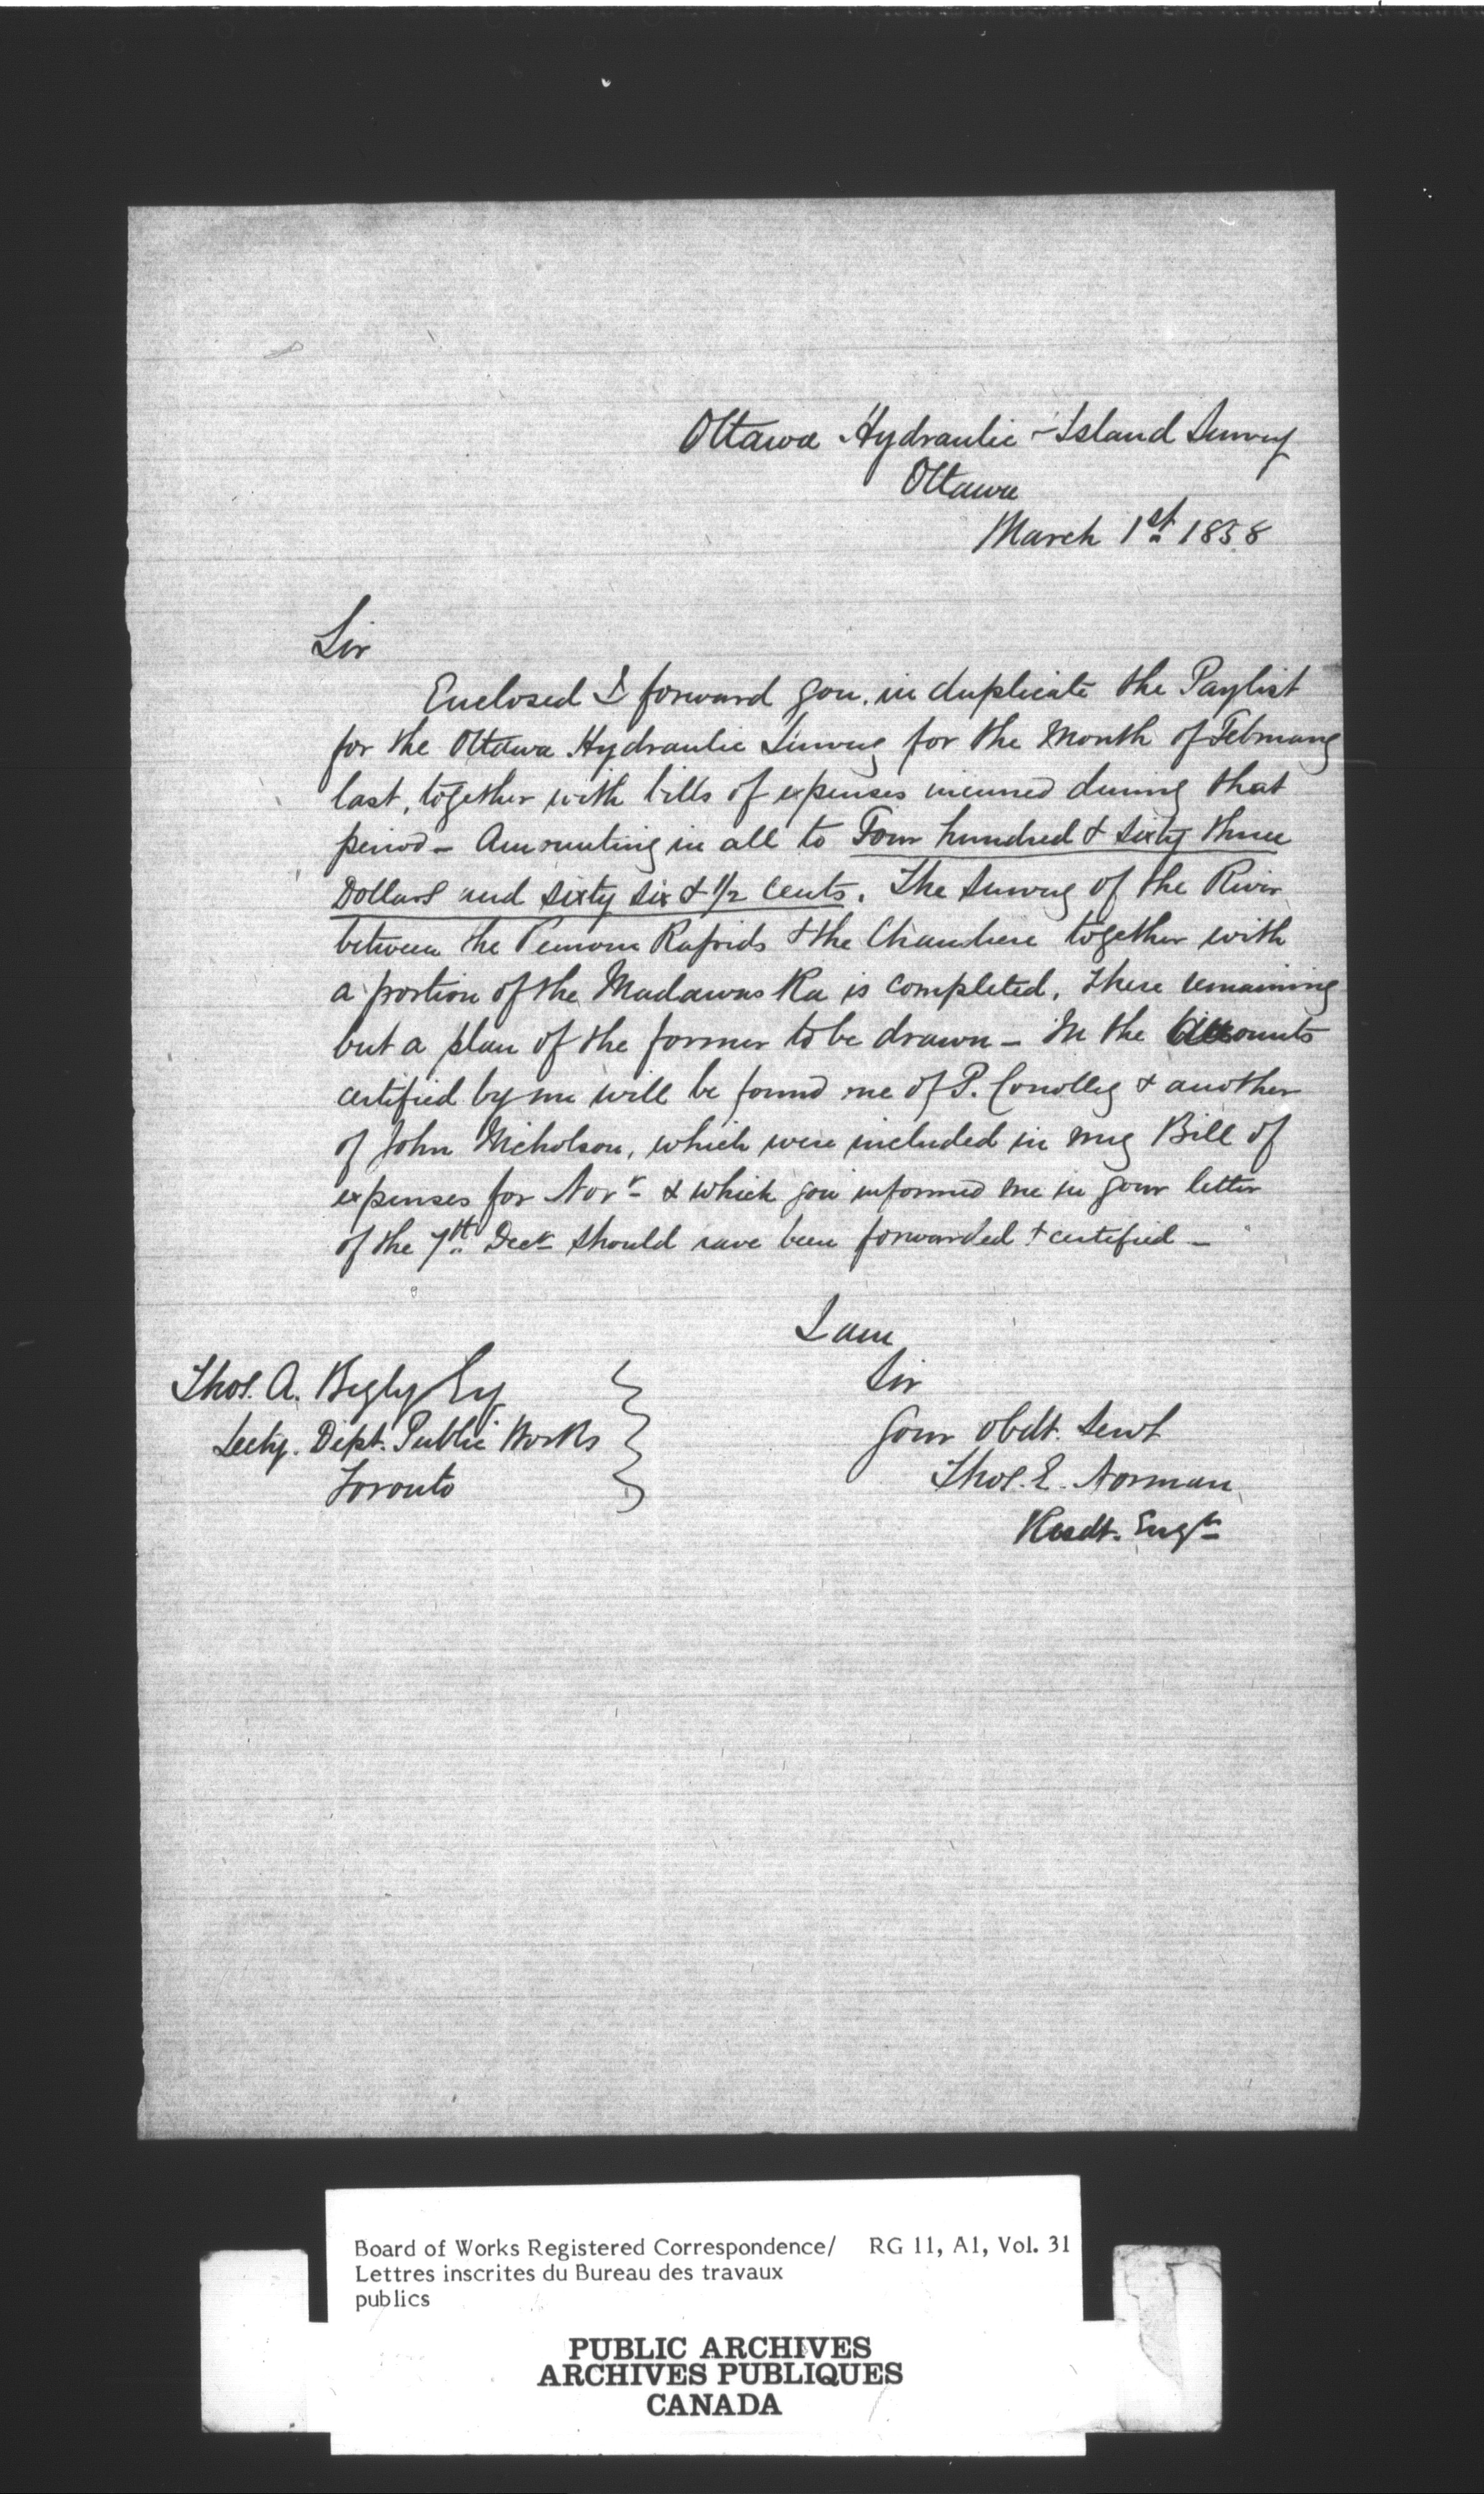 Ottawa Hydraulic - Island Survey
Ottawa
March 1st 1858
Sir
Enclosed I forward you in duplicate the Paylist
for the Ottawa Hydraulic Survey for the Month of February
last, together with bills of expenses incurred during that
period - Amounting in all to Four hundred & sixty three
Dollars and sixty six & 1/2 cents. The survey of the River
between the Rapids & the Chaudiere together with
a portion of the Madawaska is completed, there remaining
but a plan of the former to be drawn - In the accounts
certified by me will be found one of P. Conolley & another
of John Nicholson, which were included in my Bill of
expenses for Novr & which you informed me in your letter
of the 7th Decr should have been forwarded & certified -
I am
Sir
Your obdt. Servt
Thos. E. Norman
Resdt. Engr
Thos. A. Begly Esq
Secty. Dept. Public Works
Toronto
Board of Works Registered Correspondence/ RG 11, A1, Vol. 31
Lettres inscrites du Bureau des travaux
publics
PUBLIC ARCHIVES
ARCHIVES PUBLIQUES
CANADA